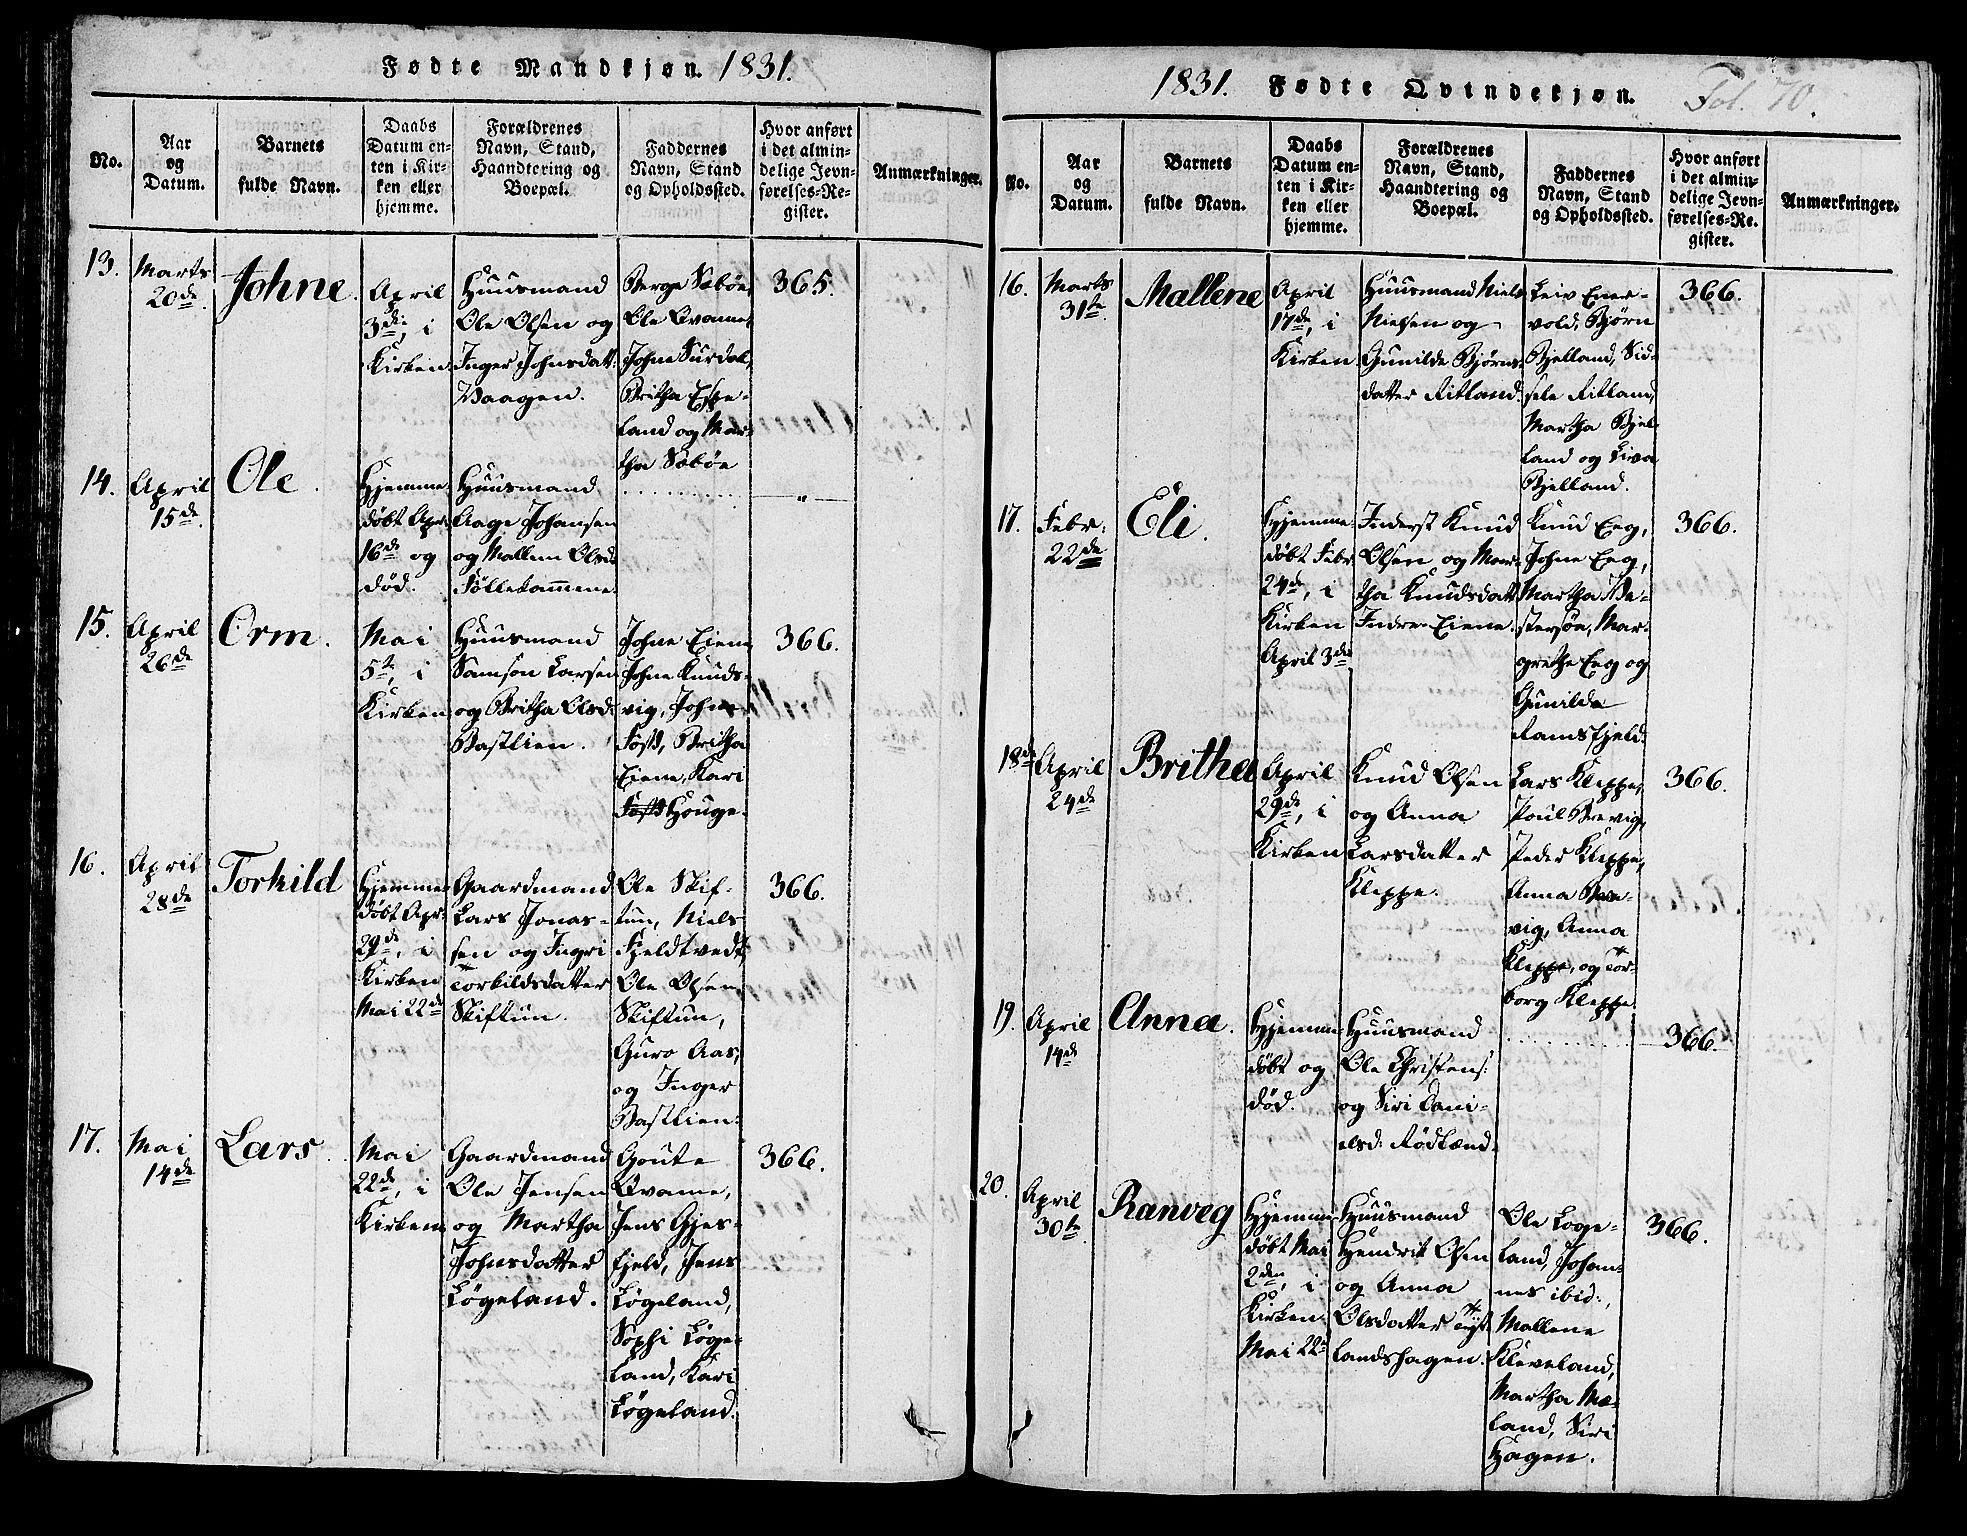 Fødte Mandkjøn. 1831.
No.
Aar
og
Datum.
Barnets
fulde Navn.
Daabs
Datum en-
ten i Kir-
ken eller
hjemme.
Forældrenes
Navn, Stand,
Haandtering og
Boepæl.
Faddernes
Navn, Stand
og Opholdssted.
Hvor anført
i det almin-
delige Jevn-
førelses-Re-
gister.
Anmærkninger.
13.
Marts
20de
Johne.
April
3die, i
Kirken
Huusmand
Ole Olsen og
Inger Johnsdatt:
Vaagen.
Berge Sæbøe,
Ole Qvame,
Johne Surdal,
Britha Espe-
land og Mar-
tha Sæbøe
365.
14.
April
15de
Ole.
Hjemme
døbt Apr:
16de og
død.
Huusmand
Aage Johansen
og Mallene Olsd:
Føllekamme.
15.
April
26de
Orm.
Mai
5te, i
Kirken
Huusmand
Samson Larsen
og Britha Olsd:
Bastlien.
Johne Eiene
Johne Knuds-
vig, Johne
Fosd, Britha
Eiene, Kari
Fosd Houge.
366.
16.
April
28de
Torkild
Hjemme
døbt Apr:
29de, i
Kirken
Mai 22de
Gaardmand
Lars Jonas-
sen og Ingri
Torkildsdatter
Skiftun.
Ole Skif-
tun, Niels
Fjeldtvedt,
Ole Olsen
Skiftun,
Guro Aas,
og Inger
Bastlien.
366.
17.
Mai
14de
Lars.
Mai
22de, i
Kirken
Gaardmand
Ole Jensen
og Martha
Johnsdatter
Løgeland.
Goute
Qvame,
Jens Gjes-
fjeld, Jens
Løgeland,
Sophi Løge-
land, Kari
Løgeland.
366.
1831. Fødte Qvindekjøn.
Fol. 70.
No.
Aar
og
Datum.
Barnets
fulde Navn.
Daabs
Datum en-
ten i Kir-
ken eller
hjemme.
Forældrenes
Navn, Stand,
Haandtering og
Boepæl.
Faddernes
Navn, Stand
og Opholdssted.
Hvor anført
i det almin-
delige Jevn-
førelses-Re-
gister.
Anmærkninger.
16.
Marts
31te
Mallene
April
17de, i
Kirken
Huusmand Niels
Nielsen og
Gunilde Bjørns-
datter Ritland.
Leiv Ener-
vold, Bjørn
Bjelland, Sid-
sele Ritland,
Martha Bjel-
land og Liva
Bjelland.
366.
17.
Febr:
22de
Eli.
Hjemme-
døbt Febr:
24de, i
Kirken
April 3die
Inderst Knud
Olsen og Mar-
tha Knudsdatt:
Indre-Eiene.
Knud Eeg,
Johne Eeg,
Martha Ve-
stersøe, Mar-
grethe Eeg og
Gunilda
Ramsfjeld.
366.
18de
April
24de
Britha
April
29de, i
Kirken
Knud Olsen
og Anna
Larsdatter
Kleppe.
Lars Kleppe,
Poul Brevig,
Peder Kleppe,
Anna Bre-
vig, Anna
Kleppe, og Tor-
borg Kleppe.
366.
19.
April
14de
Anna.
Hjemme
døbt og
død.
Huusmand
Ole Christens:
og Siri Dani-
elsd: Rødland.
366.
20.
April
30te
Ranveg
Hjemme-
døbt Mai
2den, i
Kirken
Mai 22de
Huusmand
Hendrik Olsen
og Anna
Olsdatter Tyt-
landshagen.
Ole Loge-
land, Johan-
nes ibid:,
Mallene
Kleveland,
Martha Mæ-
land, Siri
Hagen.
366.